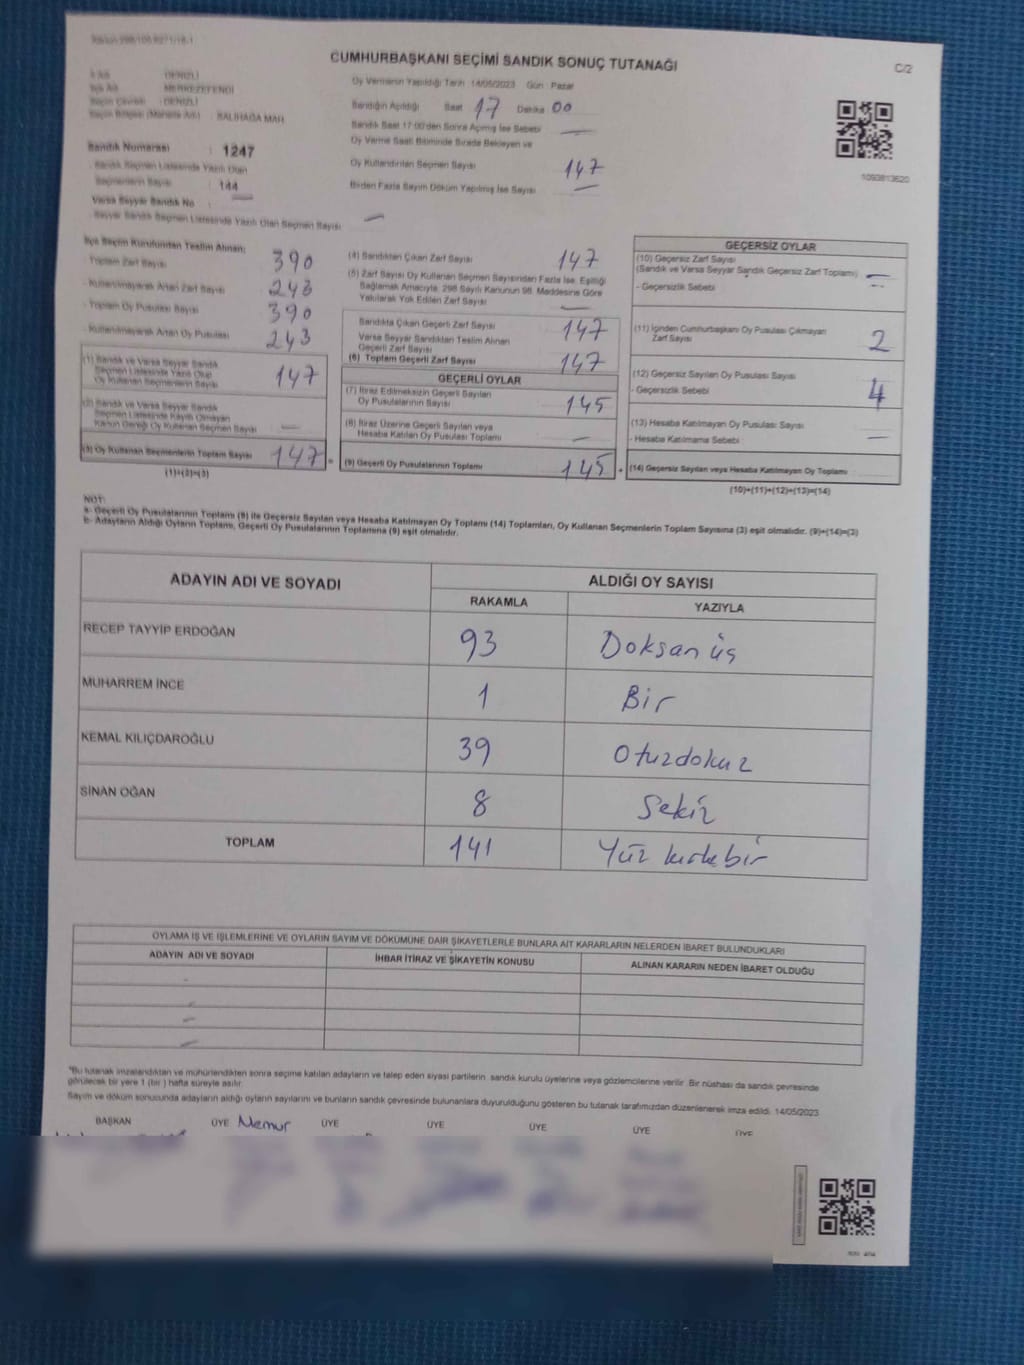 C/2
CUMHURBAŞKANI SEÇİMİ SANDIK SONUÇ TUTANAĞI
İl Adı : DENİZLİ
İlçe Adı : MERKEZEFENDİ
Seçim Çevresi : DENİZLİ
Seçim Bölgesi (Mahalle Adı) : SALİHAĞA MAH
Sandık Numarası : 1247
Sandık Seçmen Listesinde Yazılı Olan
Seçmenlerin Sayısı : 144
Varsa Seyyar Sandık No :
Seyyar Sandık Seçmen Listesinde Yazılı Olan Seçmen Sayısı : —
Oy Vermenin Yapıldığı Tarih : 14/05/2023 Gün : Pazar
Sandığın Açıldığı Saat 17 Dakika 00
Sandık Saat 17:00'den Sonra Açılmış İse Sebebi —
Oy Verme Saati Bitiminde Sırada Bekleyen ve
Oy Kullandırılan Seçmen Sayısı 147
Birden Fazla Sayım Döküm Yapılmış İse Sayısı —
1093813620
İlçe Seçim Kurulundan Teslim Alınan;
- Toplam Zarf Sayısı 390
- Kullanılmayarak Artan Zarf Sayısı 243
- Toplam Oy Pusulası Sayısı 390
- Kullanılmayarak Artan Oy Pusulası 243
(1) Sandık ve Varsa Seyyar Sandık
Seçmen Listesinde Yazılı Olup
Oy Kullanan Seçmenlerin Sayısı 147
(2) Sandık ve Varsa Seyyar Sandık
Seçmen Listesinde Kaydı Olmayan
Kanun Gereği Oy Kullanan Seçmen Sayısı —
(3) Oy Kullanan Seçmenlerin Toplam Sayısı 147 =
(1)+(2)=(3)
(4) Sandıktan Çıkan Zarf Sayısı 147
(5) Zarf Sayısı Oy Kullanan Seçmen Sayısından Fazla İse; Eşitliği
Sağlamak Amacıyla, 298 Sayılı Kanunun 98. Maddesine Göre
Yakılarak Yok Edilen Zarf Sayısı —
Sandıkta Çıkan Geçerli Zarf Sayısı 147
Varsa Seyyar Sandıktan Teslim Alınan
Geçerli Zarf Sayısı
(6) Toplam Geçerli Zarf Sayısı 147
GEÇERLİ OYLAR
(7) İtiraz Edilmeksizin Geçerli Sayılan
Oy Pusulalarının Sayısı 145
(8) İtiraz Üzerine Geçerli Sayılan veya
Hesaba Katılan Oy Pusulası Toplamı —
(9) Geçerli Oy Pusulalarının Toplamı 145 +
GEÇERSİZ OYLAR
(10) Geçersiz Zarf Sayısı
(Sandık ve Varsa Seyyar Sandık Geçersiz Zarf Toplamı) —
- Geçersizlik Sebebi —
(11) İçinden Cumhurbaşkanı Oy Pusulası Çıkmayan
Zarf Sayısı 2
(12) Geçersiz Sayılan Oy Pusulası Sayısı
- Geçersizlik Sebebi 4
(13) Hesaba Katılmayan Oy Pusulası Sayısı
- Hesaba Katılmama Sebebi —
(14) Geçersiz Sayılan veya Hesaba Katılmayan Oy Toplamı
(10)+(11)+(12)+(13)=(14)
NOT:
a- Geçerli Oy Pusulalarının Toplamı (9) ile Geçersiz Sayılan veya Hesaba Katılmayan Oy Toplamı (14) Toplamları, Oy Kullanan Seçmenlerin Toplam Sayısına (3) eşit olmalıdır. (9)+(14)=(3)
b- Adayların Aldığı Oyların Toplamı, Geçerli Oy Pusulalarının Toplamına (9) eşit olmalıdır.
ADAYIN ADI VE SOYADI ALDIĞI OY SAYISI
RAKAMLA YAZIYLA
RECEP TAYYİP ERDOĞAN 93 Doksan üç
MUHARREM İNCE 1 Bir
KEMAL KILIÇDAROĞLU 39 Otuzdokuz
SİNAN OĞAN 8 Sekiz
TOPLAM 141 Yüz kırkbir
OYLAMA İŞ VE İŞLEMLERİNE VE OYLARIN SAYIM VE DÖKÜMÜNE DAİR ŞİKAYETLERLE BUNLARA AİT KARARLARIN NELERDEN İBARET BULUNDUKLARI
ADAYIN ADI VE SOYADI İHBAR İTİRAZ VE ŞİKAYETİN KONUSU ALINAN KARARIN NEDEN İBARET OLDUĞU
*Bu tutanak imzalandıktan ve mühürlendikten sonra seçime katılan adayların ve talep eden siyasi partilerin sandık kurulu üyelerine veya gözlemcilerine verilir. Bir nüshası da sandık çevresinde
görülecek bir yere 1 (bir) hafta süreyle asılır.
Sayım ve döküm sonucunda adayların aldığı oyların sayılarını ve bunların sandık çevresinde bulunanlara duyurulduğunu gösteren bu tutanak tarafımızdan düzenlenerek imza edildi. 14/05/2023
BAŞKAN ÜYE Memur ÜYE ÜYE ÜYE ÜYE ÜYE